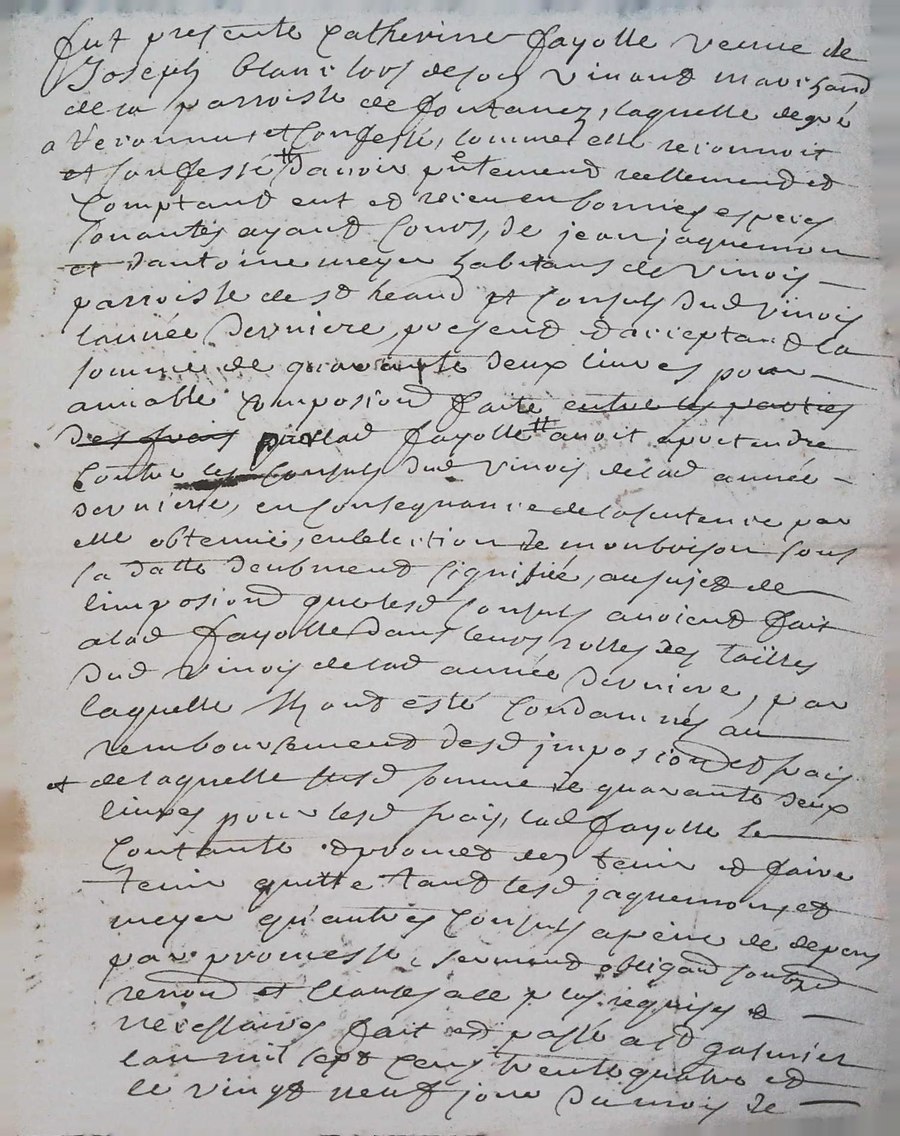 fut presente Catherine fayolle veuve de
Joseph blanc lors de son vivant marchand
de la parroisse de fontanez, laquelle de gré
a reconnu et confessé, comme elle reconnoit
et confesse davoir pntement reellement et
comptant eut et receu en bonnes especes
sonantes ayant cours, de jean jaquemon
et dantoine meyer habitans de vinois
parroisse de st heand et consuls dud vinois
lannée derniere, presend et acceptand la
somme de quarante deux livres pour
amiable composiond faite entre les parties
des frais par lad fayolle avoit a pretendre
contre les consuls dud vinois de lad année
derniere, en consequance de la sentence par
elle obtenuë, en lelection de monbrison sous
sa datte deubment signifiée, au sujet de
limposiond que lesd consuls avoient fait
a lad fayolle dans leurs rolles des tailles
dud vinois de lad année derniere, par
laquelle ils ont esté condamnés au
remboursement desd imposiond et frais
et de laquelle susd somme de quarante deux
livres pour lesd frais, lad fayolle se
contante et promet les tenir et faire
tenir quitte tant lesd jaquemon, et
meyer qu'autres consuls a peine de depens
par promesse, serment obligaõn soubmõn
renonõn et clauses a ce plus requises et
necessaires fait et passé a st galmier
lan mil sept cens trente quatre et
le vingt neuf jour du mois de